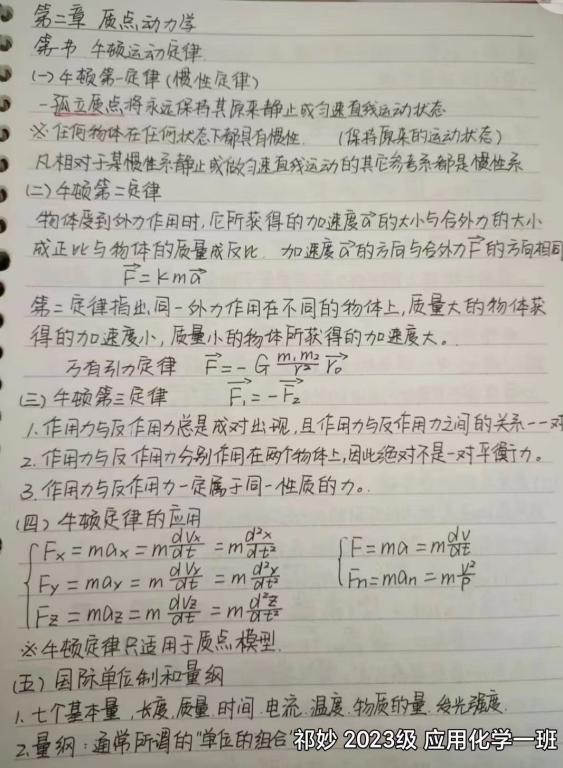 第二章 质点动力学
第一节 牛顿运动定律
(一) 牛顿第一定律 (惯性定律)
一孤立质点将永远保持其原来静止或匀速直线运动状态
※任何物体在任何状态下都具有惯性. (保持原来的运动状态)
凡相对于某惯性系静止或做匀速直线运动的其它参考系都是惯性系
(二) 牛顿第二定律
物体受到外力作用时,它所获得的加速度a⃗的大小与合外力的大小
成正比与物体的质量成反比. 加速度a⃗的方向与合外力F⃗的方向相同
F⃗=kma⃗
第二定律指出,同一外力作用在不同的物体上,质量大的物体获
得的加速度小,质量小的物体所获得的加速度大。
万有引力定律 F⃗=-G m₁m₂/r² r⃗₀
(三) 牛顿第三定律 F⃗₁=-F⃗₂
1.作用力与反作用力总是成对出现,且作用力与反作用力之间的关系一一对
2.作用力与反作用力分别作用在两个物体上,因此绝对不是一对平衡力。
3.作用力与反作用力一定属于同一性质的力。
(四) 牛顿定律的应用
Fx=max=m dvx/dt =m d²x/dt² F=ma=m dv/dt
Fy=may=m dvy/dt =m d²y/dt² Fn=man=m v²/ρ
Fz=maz=m dvz/dt =m d²z/dt²
※牛顿定律只适用于质点模型.
(五) 国际单位制和量纲
1.七个基本量,长度.质量.时间.电流.温度.物质的量.发光强度.
2.量纲:通常所谓的"单位的组合"
祁妙 2023级 应用化学一班